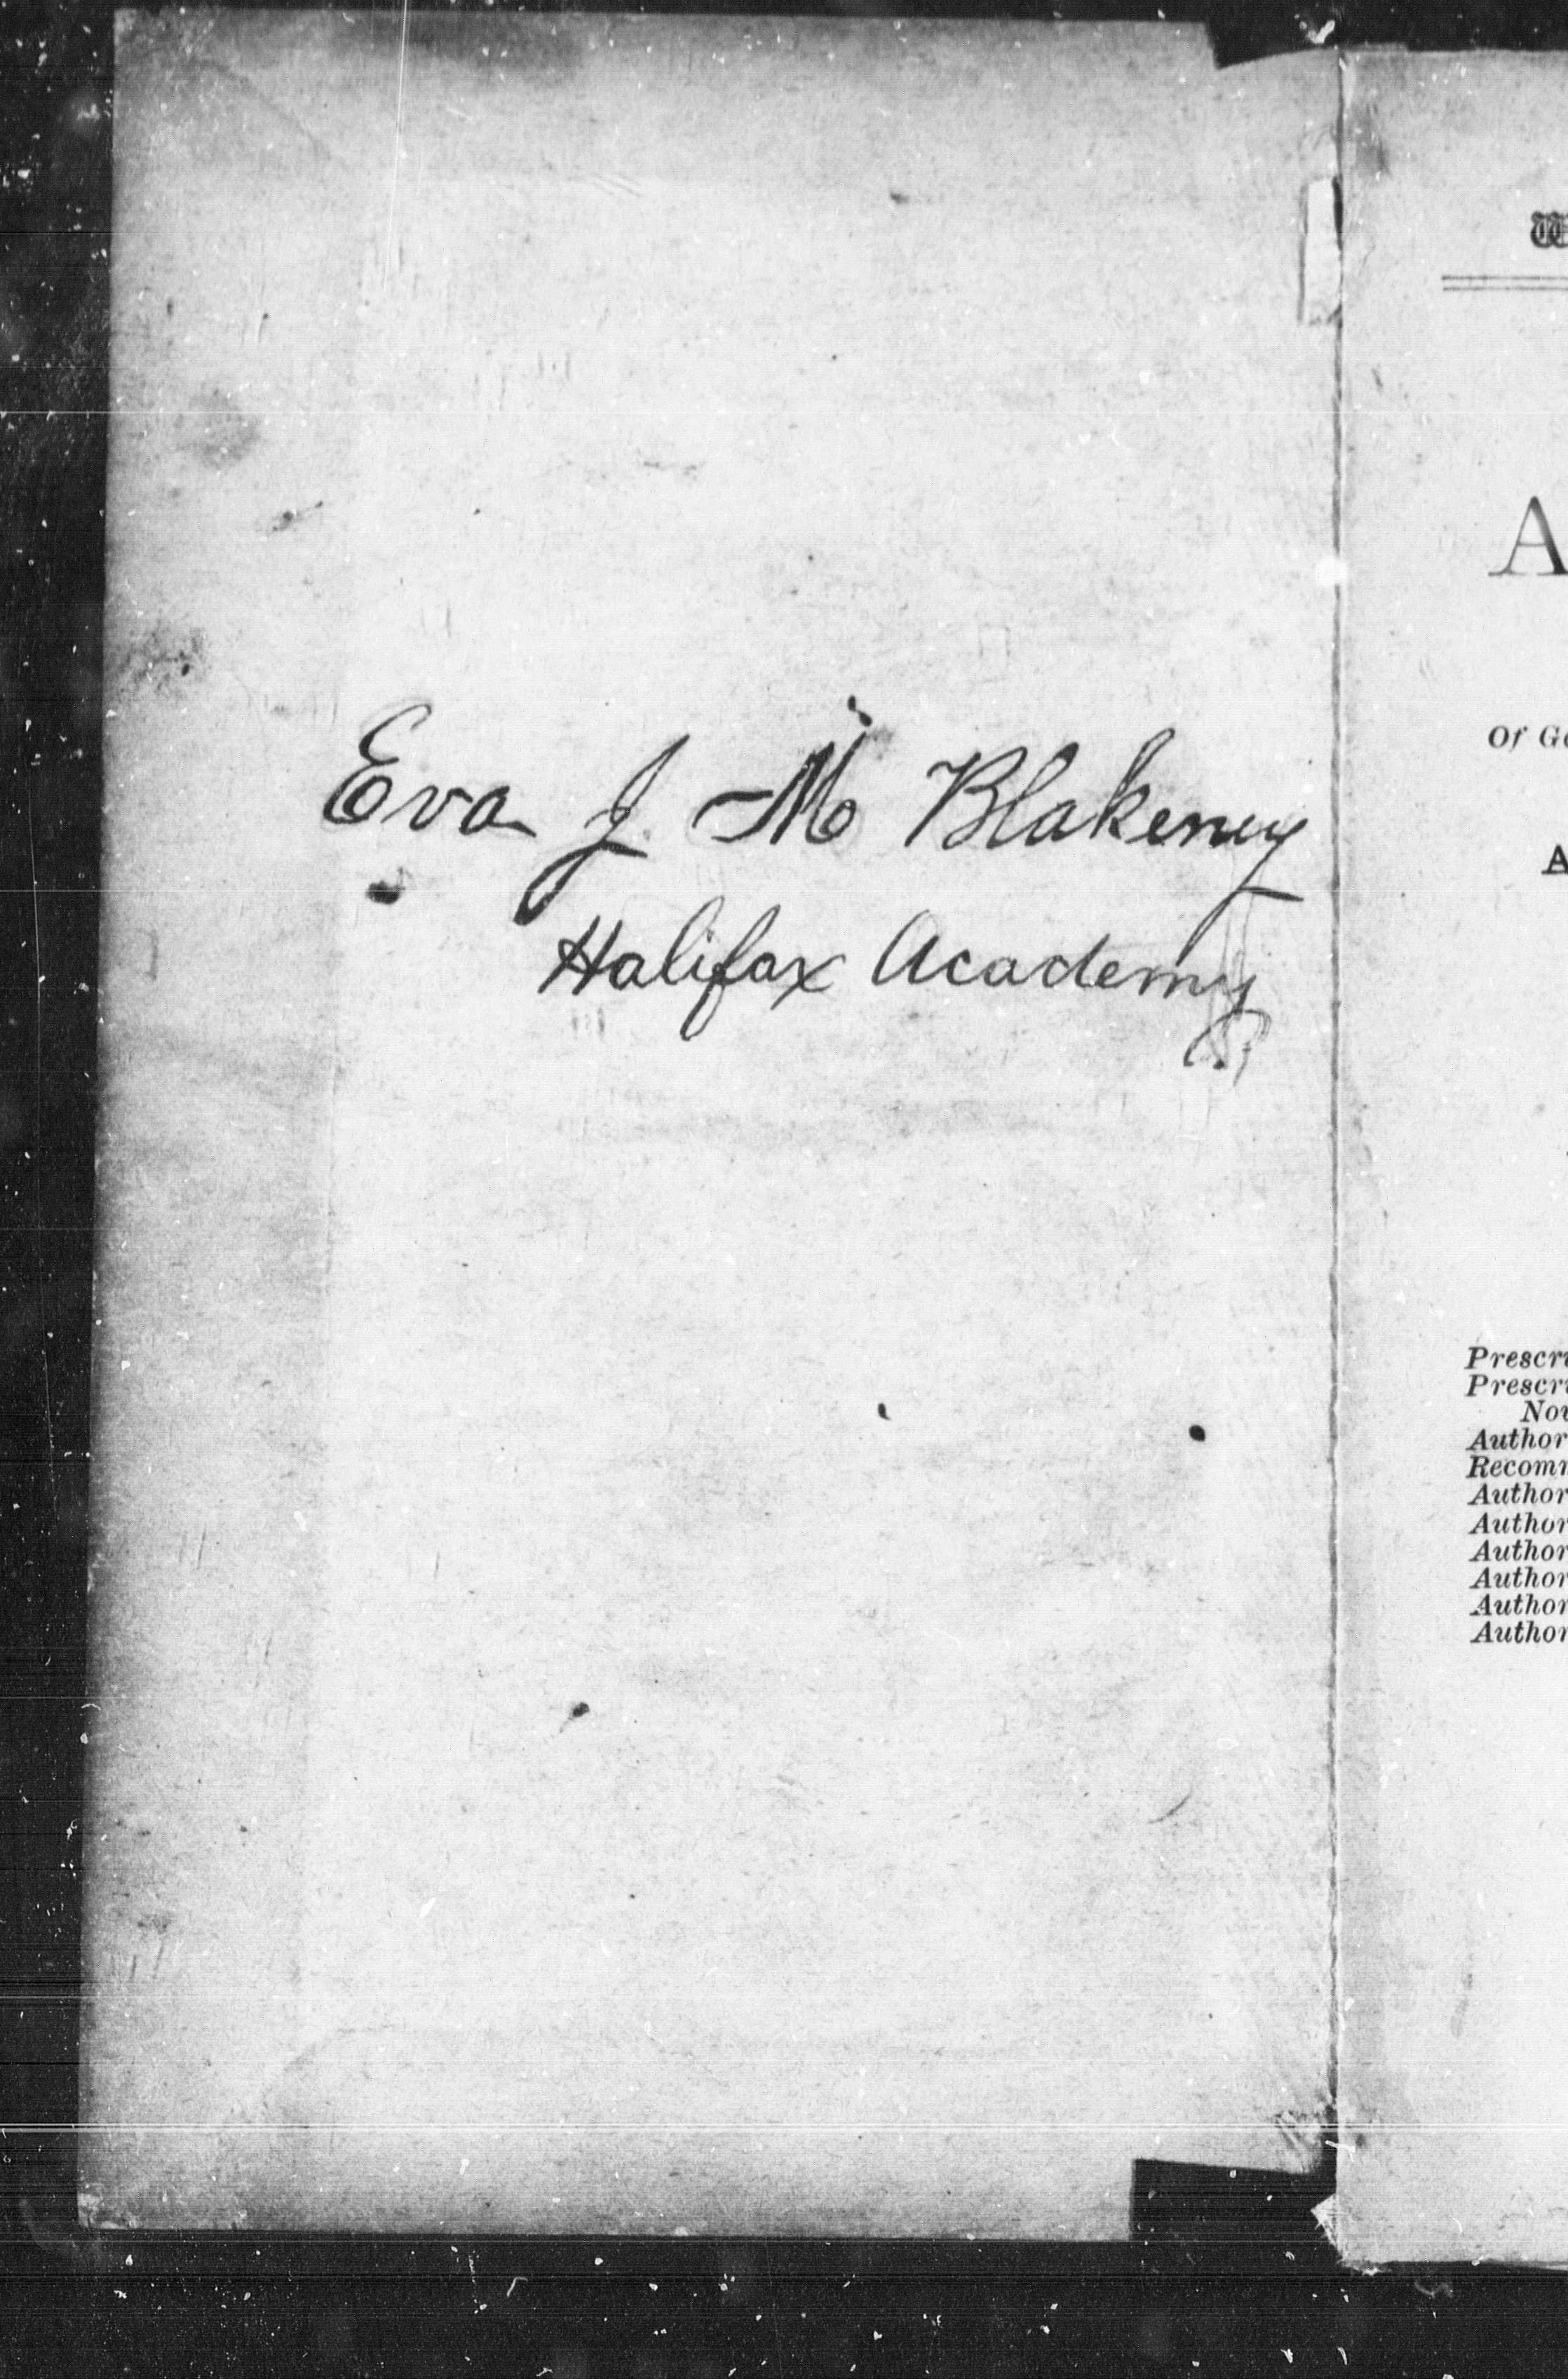 Eva J M Blakeney
Halifax Academy
A
Of Ge
A
Prescri
Prescri
Nov
Author
Recomm
Author
Author
Author
Author
Author
Author